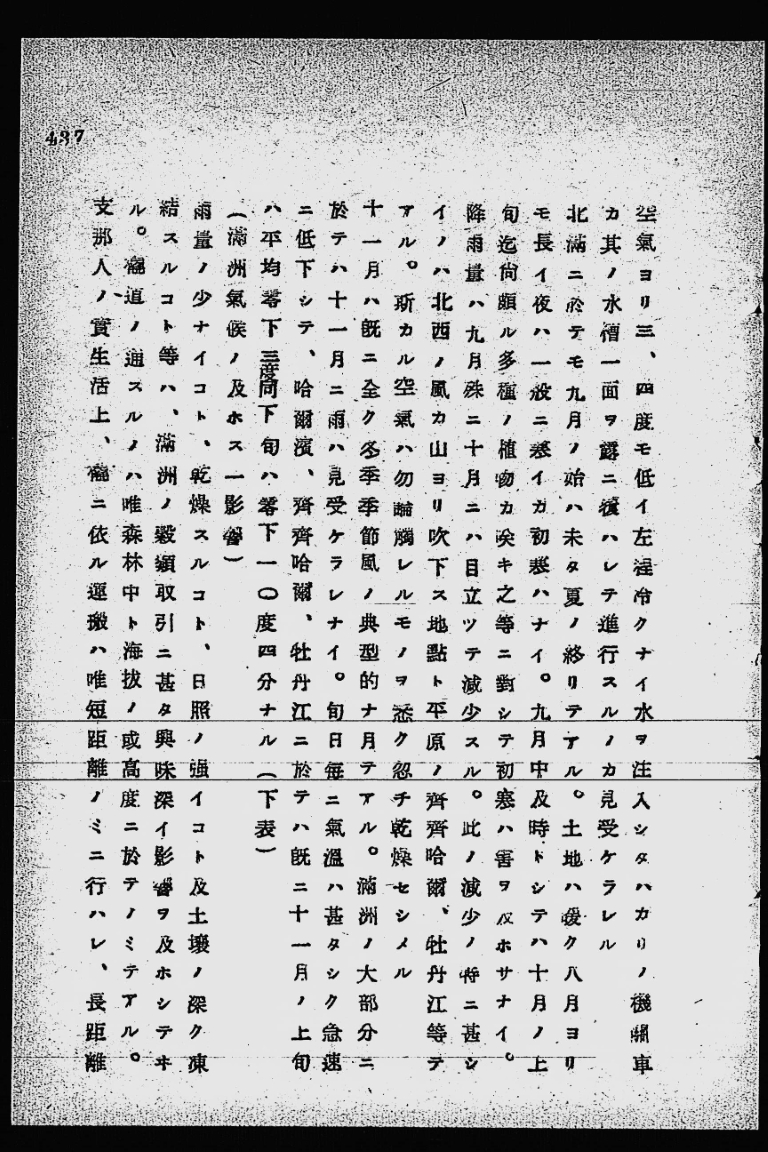 437
空氣ヨリ三、四度モ低イ左程冷クナイ水ヲ注入シタハカリノ機關車
カ其ノ水槽一面ヲ露ニ復ハレテ進行スルノカ見受ケラレル
北滿ニ於テモ九月ノ始ハ未タ夏ノ終リテアル。土地ハ暖ク八月ヨリ
モ長イ夜ハ一般ニ寒イカ初寒ハナイ。九月中及時トシテハ十月ノ上
旬迄尙頗ル多種ノ植物カ咲キ之等ニ對シテ初寒ハ害ヲ及ホサナイ。
降雨量ハ九月殊ニ十月ニハ目立ツテ減少スル。此ノ減少ノ特ニ甚シ
イノハ北西ノ風カ山ヨリ吹下ス地點ト平原ノ齊齊哈爾、牡丹江等テ
アル。斯カル空氣ハ勿論觸レルモノヲ悉ク忽チ乾燥セシメル
十一月ハ旣ニ全ク冬季季節風ノ典型的ナ月テアル。滿洲ノ大部分ニ
於テハ十一月ニ雨ハ見受ケラレナイ。旬日每ニ氣溫ハ甚タシク急速
ニ低下シテ、哈爾濱、齊齊哈爾、牡丹江ニ於テハ旣ニ十一月ノ上旬
ハ平均零下三度同下旬ハ零下一〇度四分ナル(下表)
(滿洲氣候ノ及ホス一影響)
雨量ノ少ナイコト、乾燥スルコト、日照ノ强イコト及土壤ノ深ク凍
結スルコト等ハ、滿洲ノ穀類取引ニ甚タ興味深イ影響ヲ及ホシテヰ
ル。道ノ通スルノハ唯森林中ト海拔ノ或高度ニ於テノミテアル。
支那人ノ實生活上、ニ依ル運搬ハ唯短距離ノミニ行ハレ、長距離